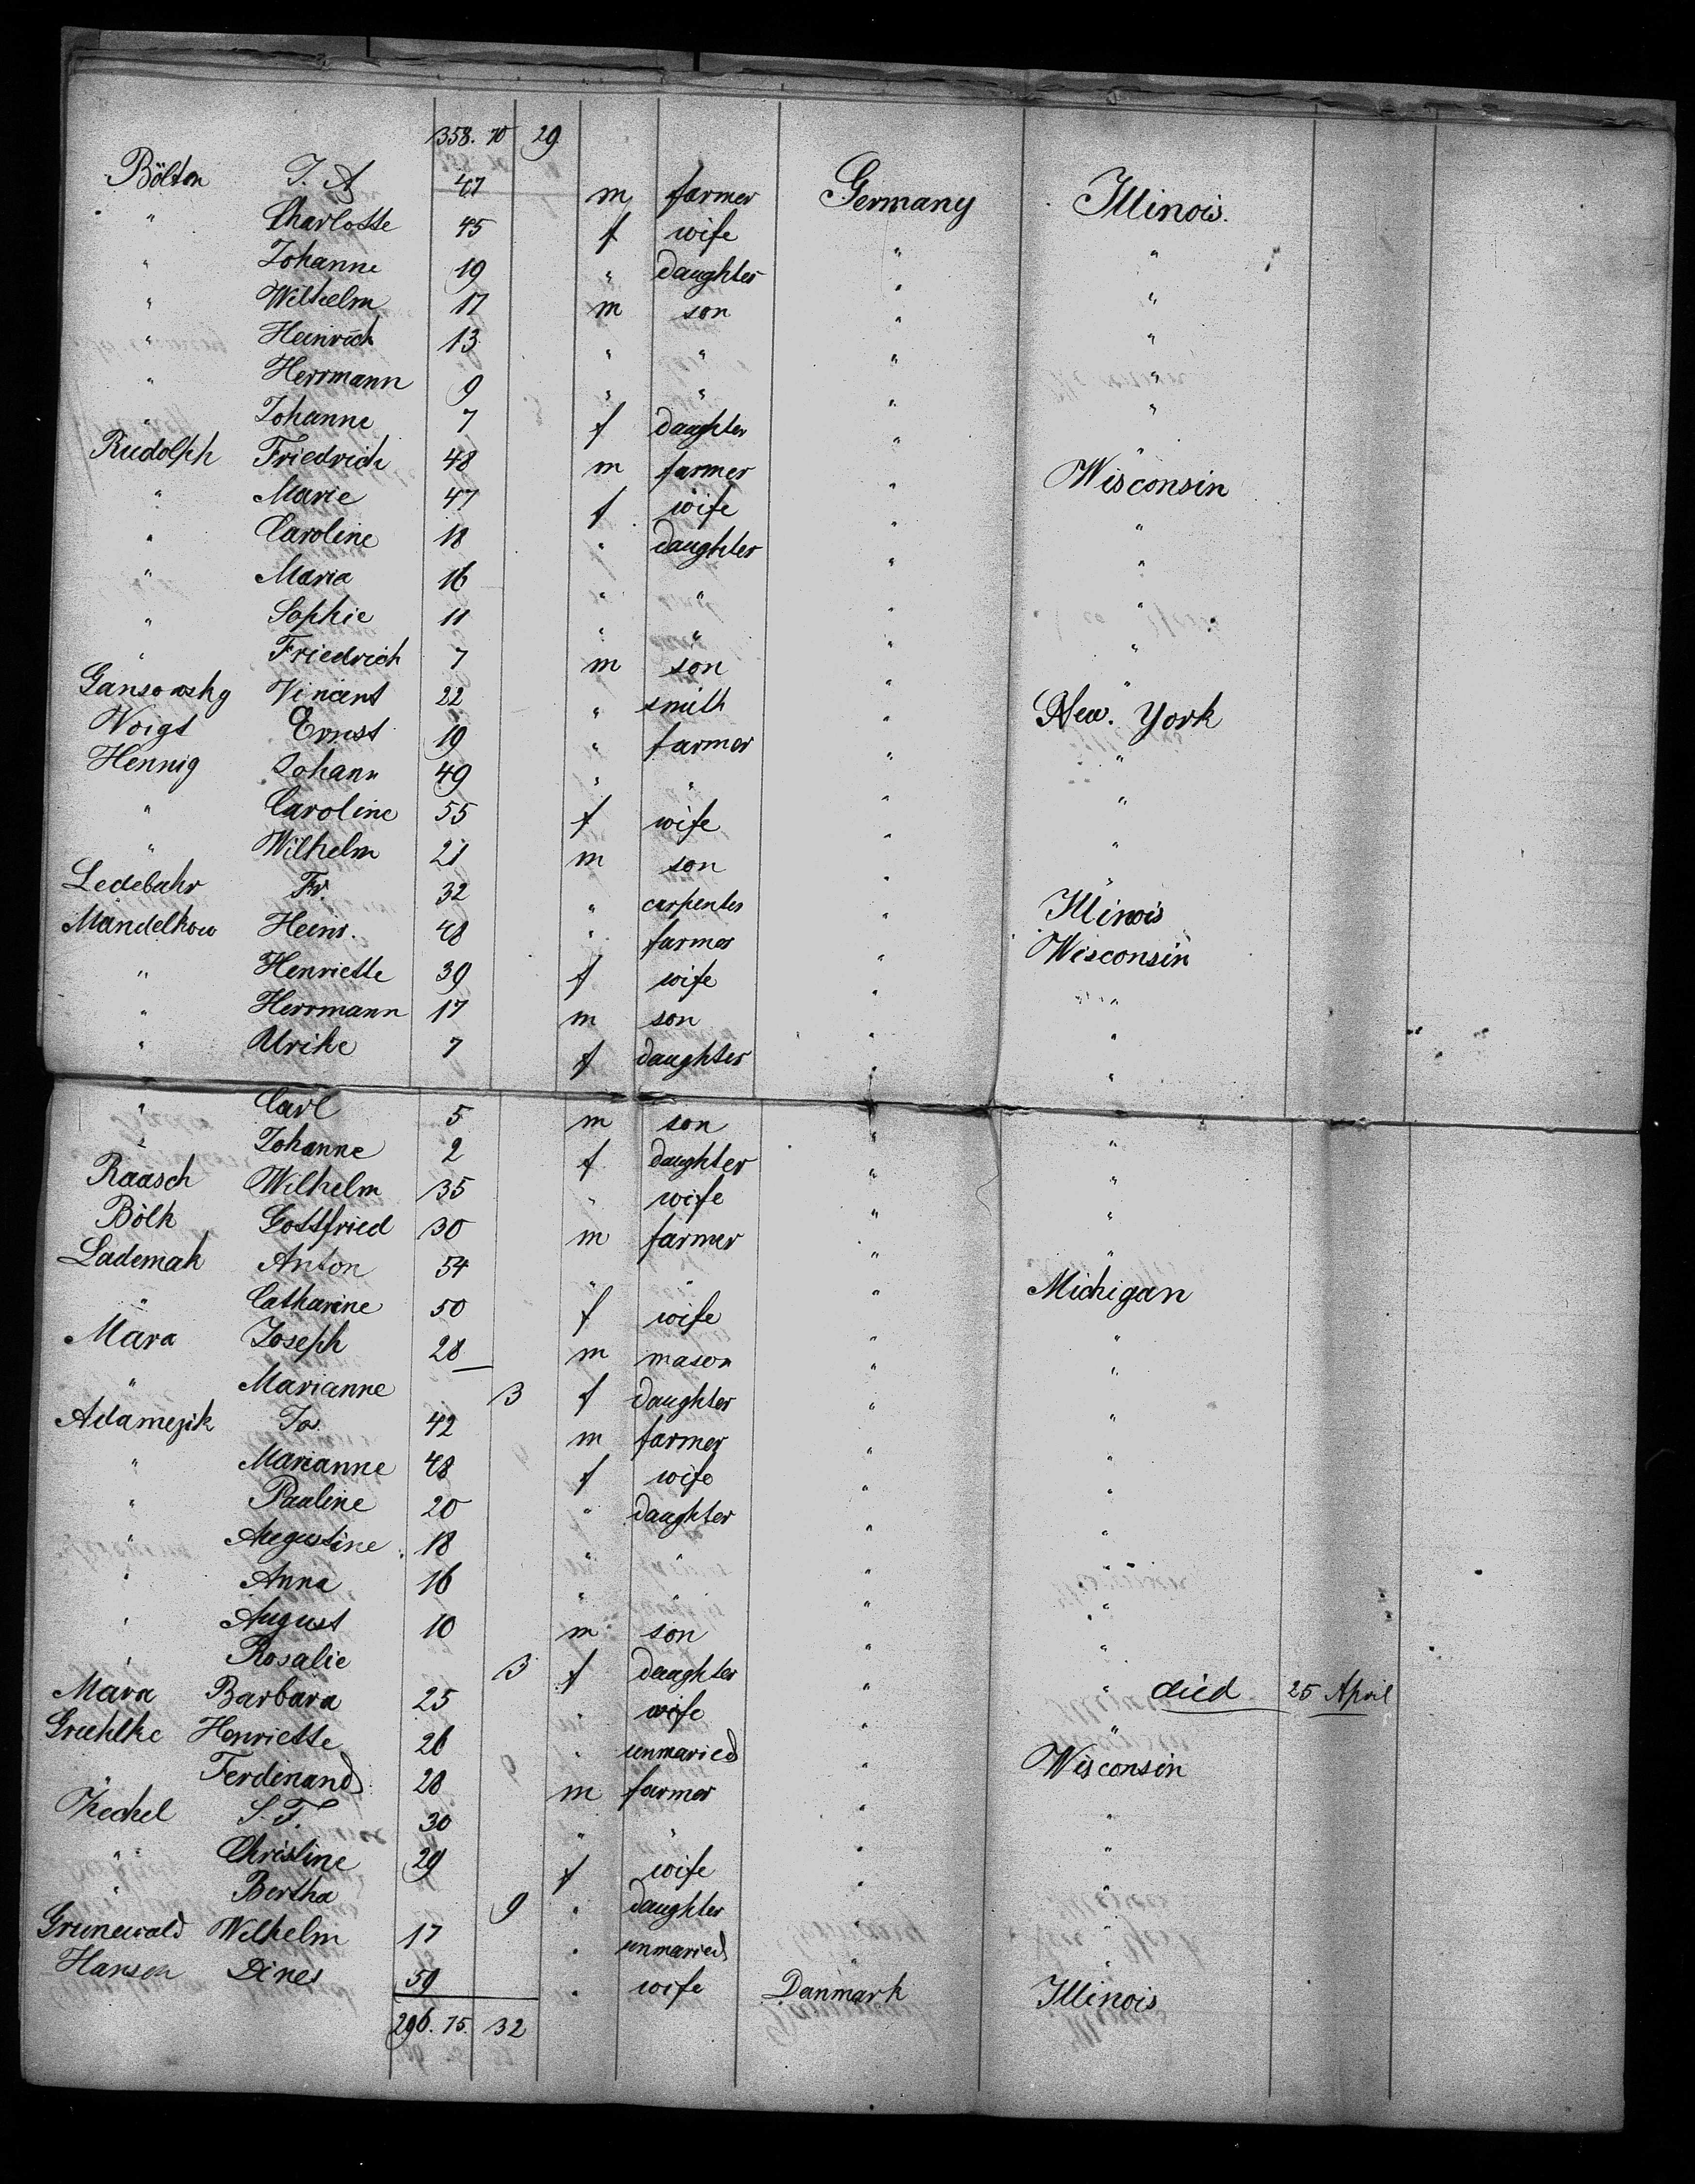 358. 70 29.
Bölton J. A 47 m farmer Germany Illinois.
" Charlotte 45 f wife " "
" Johanne 19 " daughter " "
" Wilhelm 17 m son " "
" Heinrich 13 " " " "
" Herrmann 9 " " " "
" Johanne 7 f daughter " "
Rudolph Friedrich 48 m farmer " Wisconsin
" Marie 47 f wife " "
" Caroline 18 " daughter " "
" Maria 16 " " " "
" Sophie 11 " " " "
" Friedrich 7 m son " "
Gansowsky Vincent 22 " smith " New. York
Voigt Ernst 19 " farmer " "
Hennig Johann 49 " " " "
" Caroline 55 f wife " "
" Wilhelm 21 m son " "
Ledebuhr Fr. 32 " carpenter " Illinois
Mandelkow Heinr. 48 " farmer " Wisconsin
" Henriette 39 f wife " "
" Herrmann 17 m son " "
" Ulrike 7 f daughter " "
" Carl 5 m son " "
" Johanne 2 f daughter " "
Raasch Wilhelm 35 " wife " "
Bölk Gottfried 30 m farmer " "
Lademak Anton 54 " " " Michigan
" Catharine 50 f wife " "
Mara Joseph 28 m mason " "
" Marianne 3 f daughter " "
Adamezik Jo. 42 m farmer " "
" Marianne 48 f wife " "
" Pauline 20 " daughter " "
" Augustine 18 " " " "
" Anna 16 " " " "
" August 10 m son " "
" Rosalie 3 f daughter " " died 25 April
Mara Barbara 25 " wife " "
Gruehlke Henriette 26 " unmaried " Wisconsin
" Ferdinand 28 m farmer " "
Keckel S. F. 30 " " " "
" Christine 29 f wife " "
" Bertha 9 " daughter " "
Grunewald Wilhelm 17 " unmaried " "
Hansen Dines 59 " wife Danmark Illinois
296. 75. 32